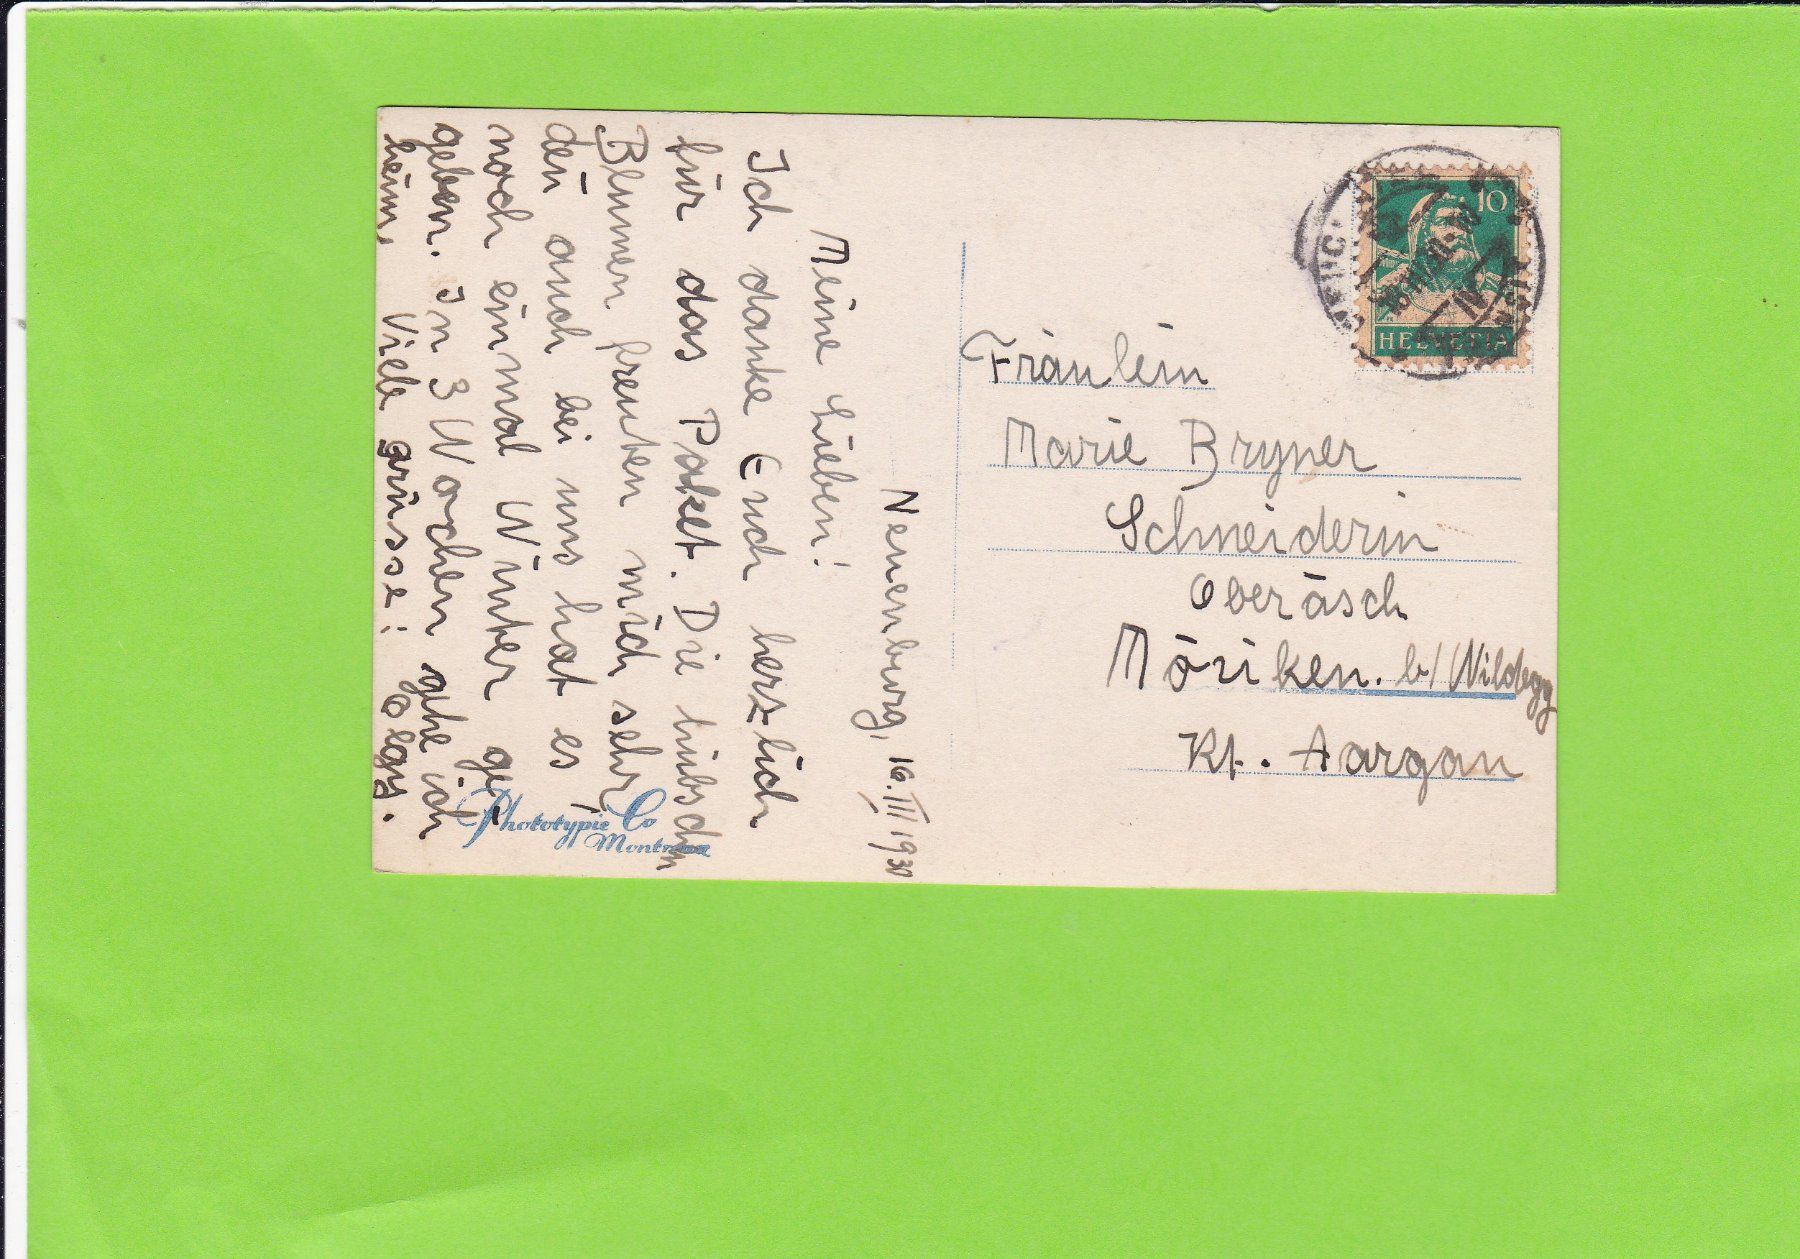 Neuenburg, 16. III 1930
Meine Lieben!
Ich danke Euch herzlich
für das Paket. Die hübschen
Blumen freuten mich sehr,
den auch bei uns hat es
noch einmal Winter ge-
geben. In 3 Wochen gehe ich
heim. Viele grüsse:
Phototypie Co
Montreux
10
HELVETIA
Fräulein
Marie Bryner
Schneiderin
Oberäsch
Möriken. b/ Wildegg
Kt. Aargau